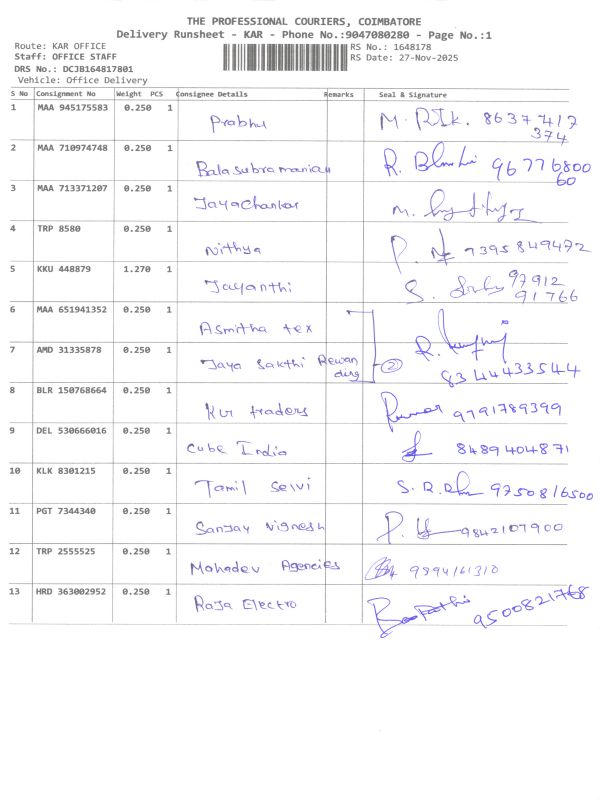 THE PROFESSIONAL COURIERS, COIMBATORE
Delivery Runsheet - KAR - Phone No.:9047080280 - Page No.:1
Route: KAR OFFICE RS No.: 1648178
Staff: OFFICE STAFF RS Date: 27-Nov-2025
DRS No.: DCJB164817801
Vehicle: Office Delivery
S No Consignment No Weight PCS Consignee Details Remarks Seal & Signature
1 MAA 945175583 0.250 1 Prabhu M. 8637417
374
2 MAA 710974748 0.250 1 Balasubramaniam R. 96776800
60
3 MAA 713371207 0.250 1 Jayachankar M.
4 TRP 8580 0.250 1 Nithya P. 9395849472
5 KKU 448879 1.270 1 Jayanthi S. 97912
91766
6 MAA 651941352 0.250 1 Asmitha tex R.
7 AMD 31335878 0.250 1 Jaya Sakthi Rewan
ding 2 8344433544
8 BLR 150768664 0.250 1 Kur traders Kumar 9791789399
9 DEL 530666016 0.250 1 Cube India 8489404871
10 KLK 8301215 0.250 1 Tamil Selvi S.R. 9750816500
11 PGT 7344340 0.250 1 Sanjay Vignesh P. 9842107900
12 TRP 2555525 0.250 1 Mahadev Agencies 9894161310
13 HRD 363002952 0.250 1 Raja Electro 9500821768